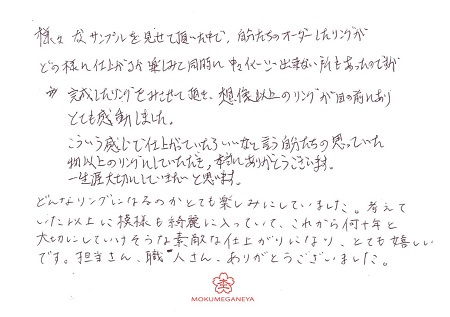 様々なサンプルを見せて頂いた中で、自分たちのオーダーしたリングが
どの様に仕上がるか楽しみで同時に中々イメージ出来ない所もあったのですが
完成したリングをみさせて頂き、想像以上のリングが目の前にあり
とても感動しました。
こういう感じで仕上がっていたらいいなと言う自分たちの思っていた
物以上のリングにしていただき、本当にありがとうございます。
一生涯大切にしていきたいと思います。
どんなリングになるのかとても楽しみにしていました。考えて
いた以上に模様も綺麗に入っていて、これから何十年と
大切にしていけそうな素敵な仕上がりになり、とても嬉しい
です。担当さん、職人さん、ありがとうございました。
MOKUMEGANEYA